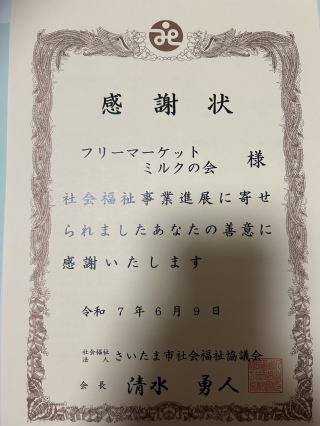 感謝状
フリーマーケット
ミルクの会 様
社会福祉事業進展に寄せ
られましたあなたの善意に
感謝いたします
令和 7 年 6 月 9 日
社会福祉法人 さいたま市社会福祉協議会
会長 清水 勇人